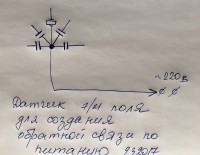 ~220в
Датчик э/м поля
для создания
обратной связи по
питанию